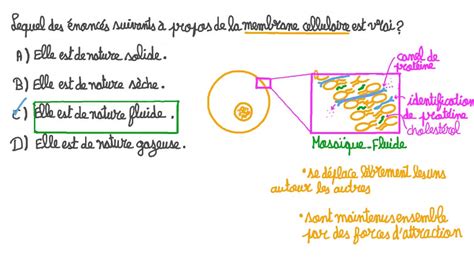 Lequel des énoncés suivants à propos de la membrane cellulaire est vrai ?
A) Elle est de nature solide.
B) Elle est de nature sèche.
C) Elle est de nature fluide.
D) Elle est de nature gazeuse.
canal de
protéine
identification
de protéine
cholestérol
Mosaïque-Fluide
• se déplace librement les uns
autour les autres
• sont maintenus ensemble
par des forces d'attraction